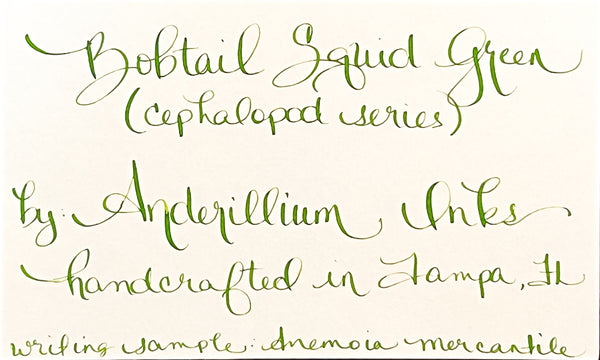 Bobtail Squid Green
(cephalopod series)
by: Anderillium Inks
handcrafted in Tampa, FL
writing sample: Anemoia Mercantile